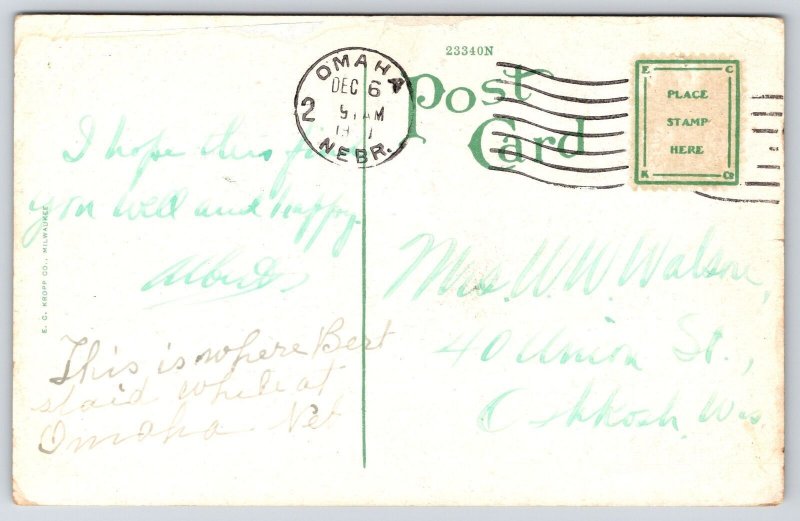 23340N
Post
Card
OMAHA
DEC 6
2
9 AM
NEBR.
E C
PLACE
STAMP
HERE
K Co
E. C. KROPP CO., MILWAUKEE
I hope this finds
you well and happy.
Albert
This is where Bert
staid while at
Omaha Neb
Mrs. W. W. Watson,
40 Union St.,
Oshkosh, Wis.